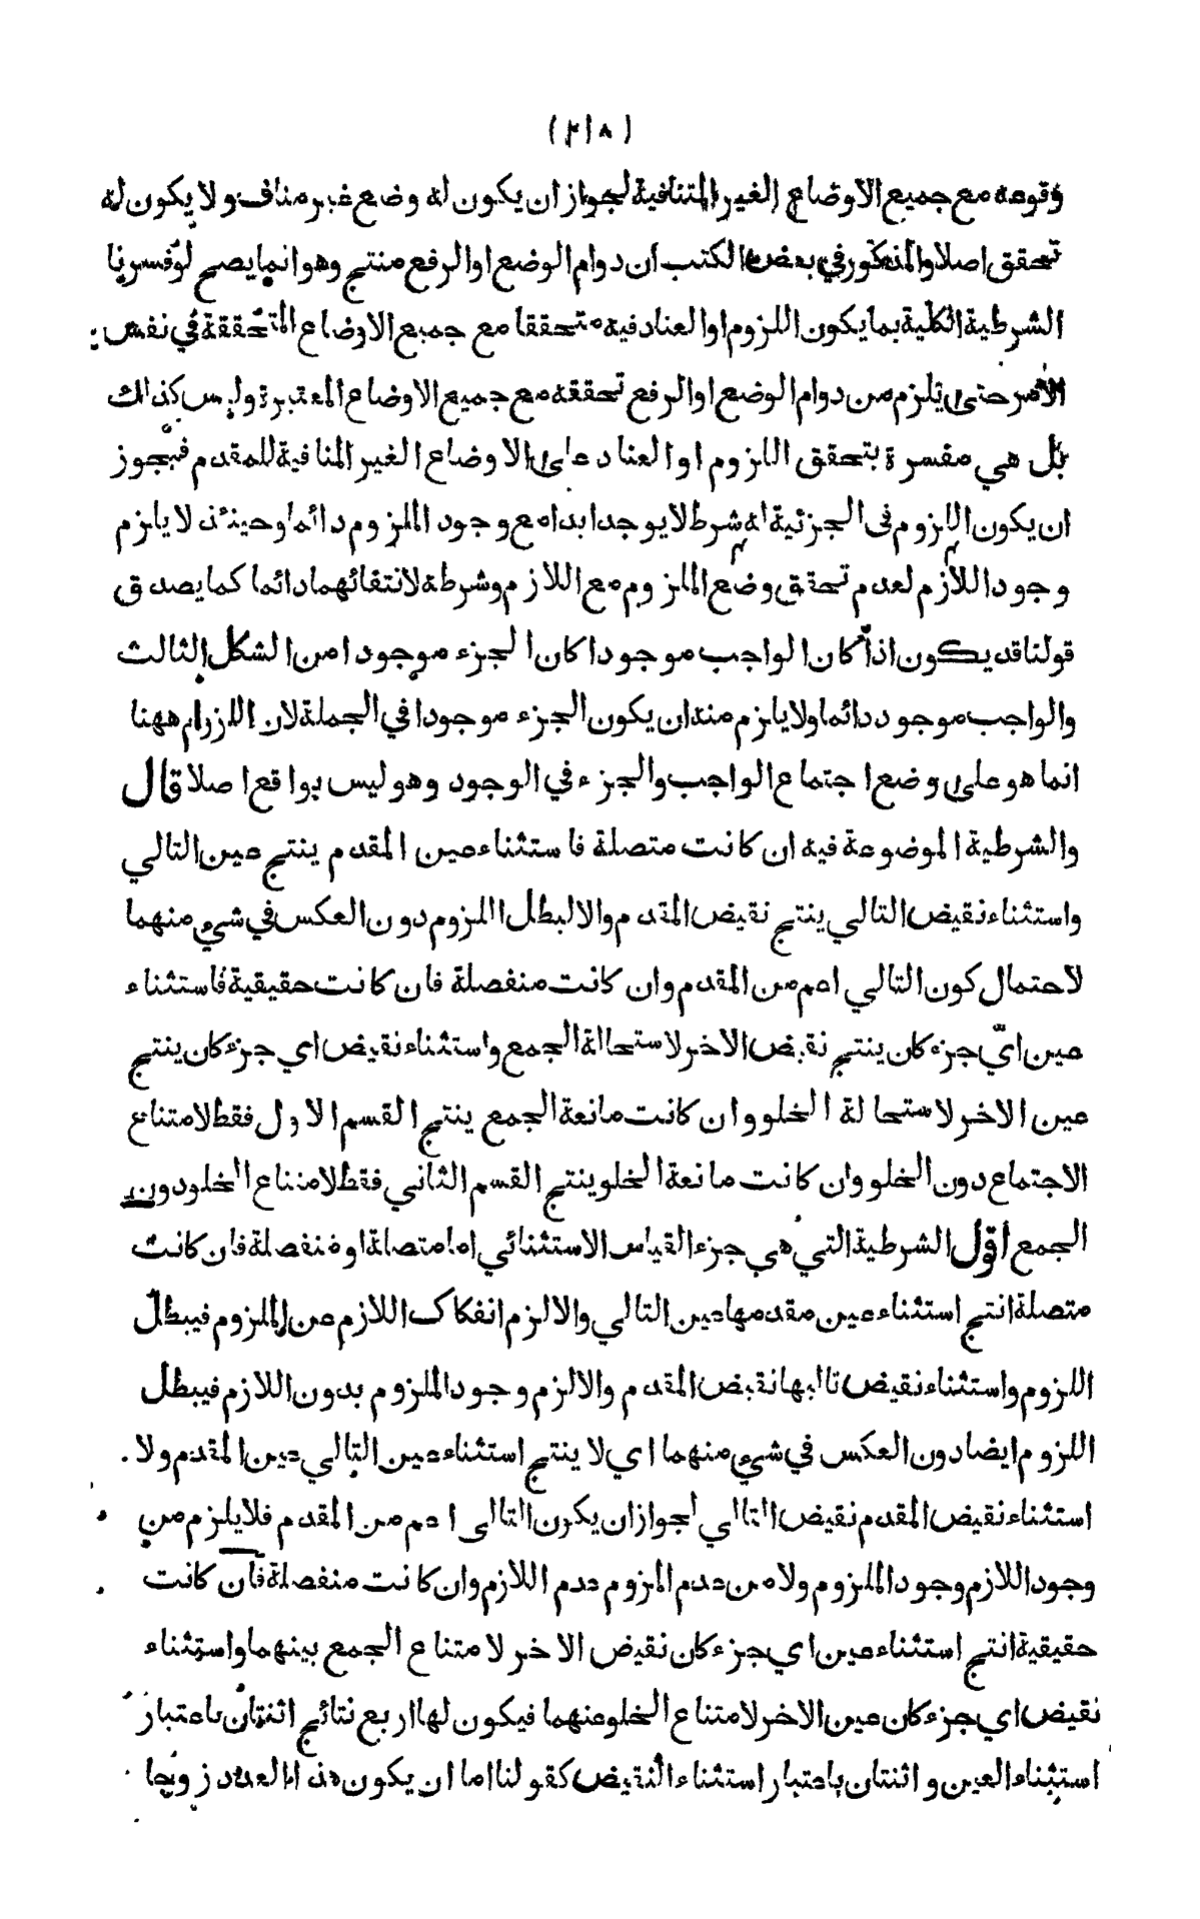 (٢١٨)
وقوعه مع جميع الاوضاع الغير المتنافية لجواز ان يكون له وضع غير مناف ولا يكون له
تحقق اصلا والمذكور في بعض الكتب ان دوام الوضع او الرفع منتج وهو انما يصح لو فسرنا
الشرطية الكلية بما يكون اللزوم او العناد فيه متحققا مع جميع الاوضاع المتحققة في نفس
الامر حتى يلزم من دوام الوضع او الرفع تحققه مع جميع الاوضاع المعتبرة وليس كذلك
بل هي مفسرة بتحقق اللزوم او العناد على الاوضاع الغير المنافية للمقدم فيجوز
ان يكون اللزوم في الجزئية له شرط لا يوجد ابدا مع وجود الملزوم دائما وحينئذ لا يلزم
وجود اللازم لعدم تحقق وضع الملزوم مع اللازم وشرطه لانتفائهما دائما كما يصدق
قولنا قد يكون اذا كان الواجب موجودا كان الجزء موجودا من الشكل الثالث
والواجب موجود دائما ولا يلزم منه ان يكون الجزء موجودا في الجملة لان اللزوم ههنا
انما هو على وضع اجتماع الواجب والجزء في الوجود وهو ليس بواقع اصلا قال
والشرطية الموضوعة فيه ان كانت متصلة فاستثناء عين المقدم ينتج عين التالي
واستثناء نقيض التالي ينتج نقيض المقدم والا لبطل اللزوم دون العكس في شيء منهما
لاحتمال كون التالي اعم من المقدم وان كانت منفصلة فان كانت حقيقية فاستثناء
عين ايّ جزء كان ينتج نقيض الاخر لاستحالة الجمع واستثناء نقيض اي جزء كان ينتج
عين الاخر لاستحالة الخلو وان كانت مانعة الجمع ينتج القسم الاول فقط لامتناع
الاجتماع دون الخلو وان كانت مانعة الخلو ينتج القسم الثاني فقط لامتناع الخلو دون
الجمع اقول الشرطية التي هي جزء القياس الاستثنائي اما متصلة او منفصلة فان كانت
متصلة انتج استثناء عين مقدمها عين التالي والا لزم انفكاك اللازم عن الملزوم فيبطل
اللزوم واستثناء نقيض تاليها نقيض المقدم والا لزم وجود الملزوم بدون اللازم فيبطل
اللزوم ايضا دون العكس في شيء منهما اي لا ينتج استثناء عين التالي عين المقدم ولا
استثناء نقيض المقدم نقيض التالي لجواز ان يكون التالي اعم من المقدم فلا يلزم من
وجود اللازم وجود الملزوم ولا من عدم الملزوم عدم اللازم وان كانت منفصلة فان كانت
حقيقية انتج استثناء عين اي جزء كان نقيض الاخر لامتناع الجمع بينهما واستثناء
نقيض اي جزء كان عين الاخر لامتناع الخلو عنهما فيكون لها اربع نتائج اثنتان باعتبار
استثناء العين واثنتان باعتبار استثناء النقيض كقولنا اما ان يكون هذا العدد زوجا